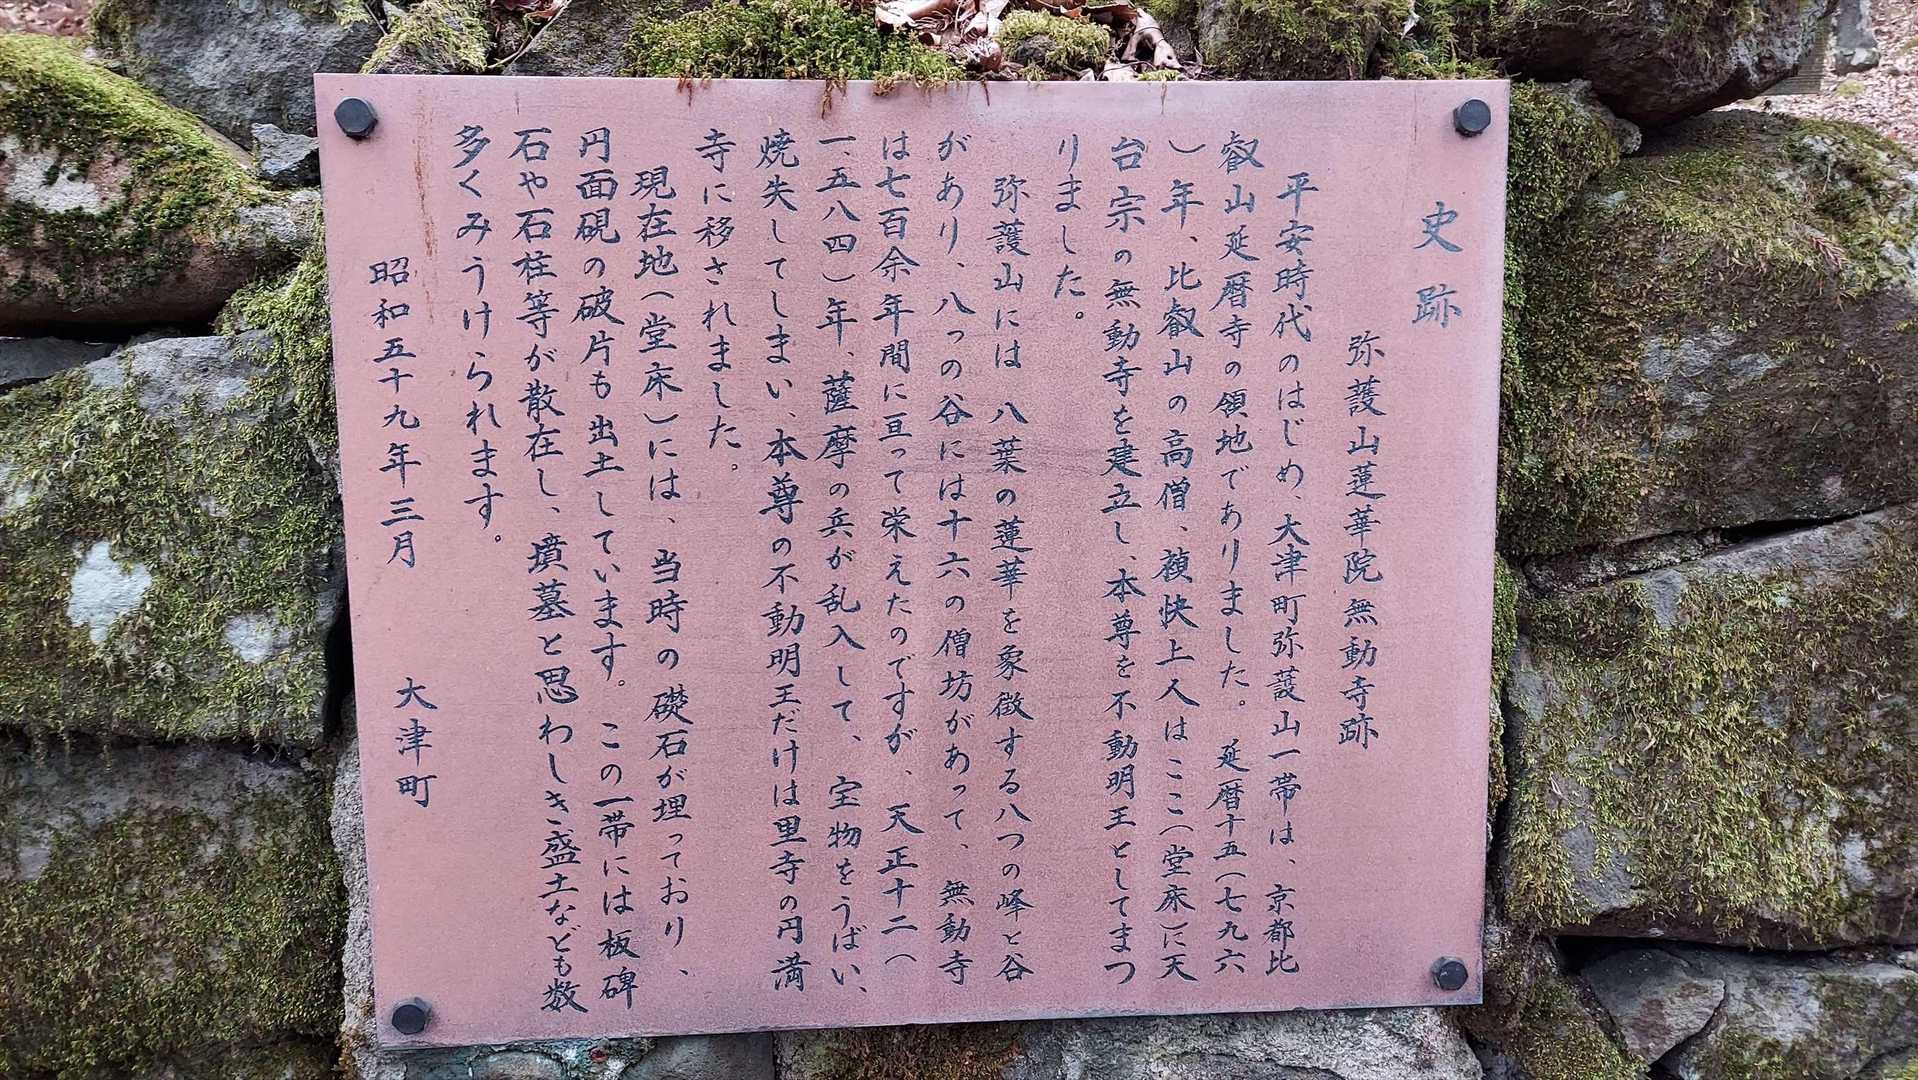 史跡
弥護山蓮華院無動寺跡
平安時代のはじめ、大津町弥護山一帯は、京都比
叡山延暦寺の領地でありました。延暦十五(七九六
)年、比叡山の高僧、禎快上人はここ(堂床)に天
台宗の無動寺を建立し、本尊を不動明王としてまつ
りました。
弥護山には八葉の蓮華を象徴する八つの峰と谷
があり、八っの谷には十六の僧坊があって、無動寺
は七百余年間に亘って栄えたのですが、天正十二(
一、五八四)年、薩摩の兵が乱入して、宝物をうばい、
焼失してしまい、本尊の不動明王だけは里寺の円満
寺に移されました。
現在地(堂床)には、当時の礎石が埋っており、
円面硯の破片も出土しています。この一帯には板碑
石や石柱等が散在し、墳墓と思わしき盛土なども数
多くみうけられます。
昭和五十九年三月 大津町